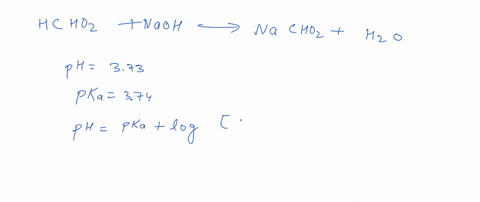 HCHO2 + NaOH ⟷ NaCHO2 + H2O
pH = 3.73
pKa = 3.74
pH = pKa + log [